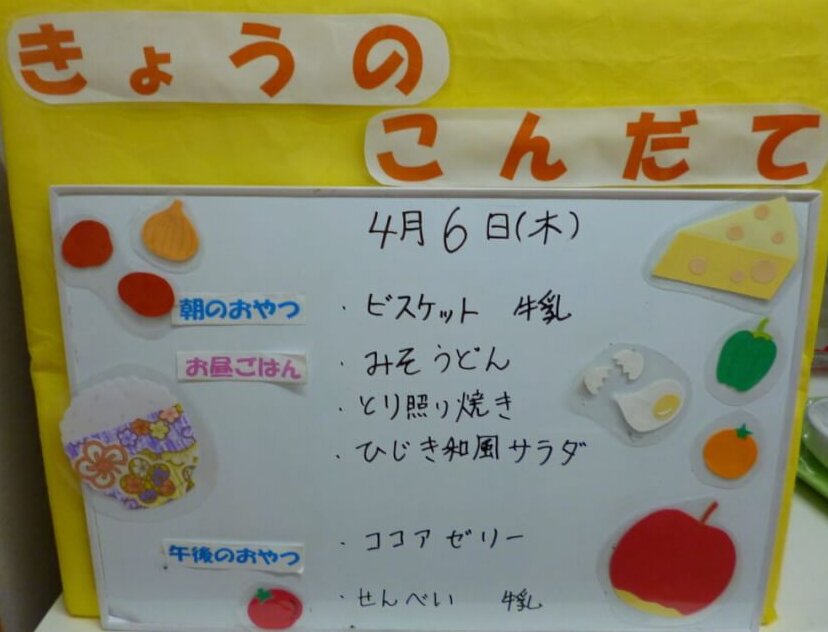 きょうの
こんだて
4月6日(木)
朝のおやつ ・ビスケット 牛乳
お昼ごはん ・みそうどん
・とり照り焼き
・ひじき和風サラダ
午後のおやつ ・ココアゼリー
・せんべい 牛乳